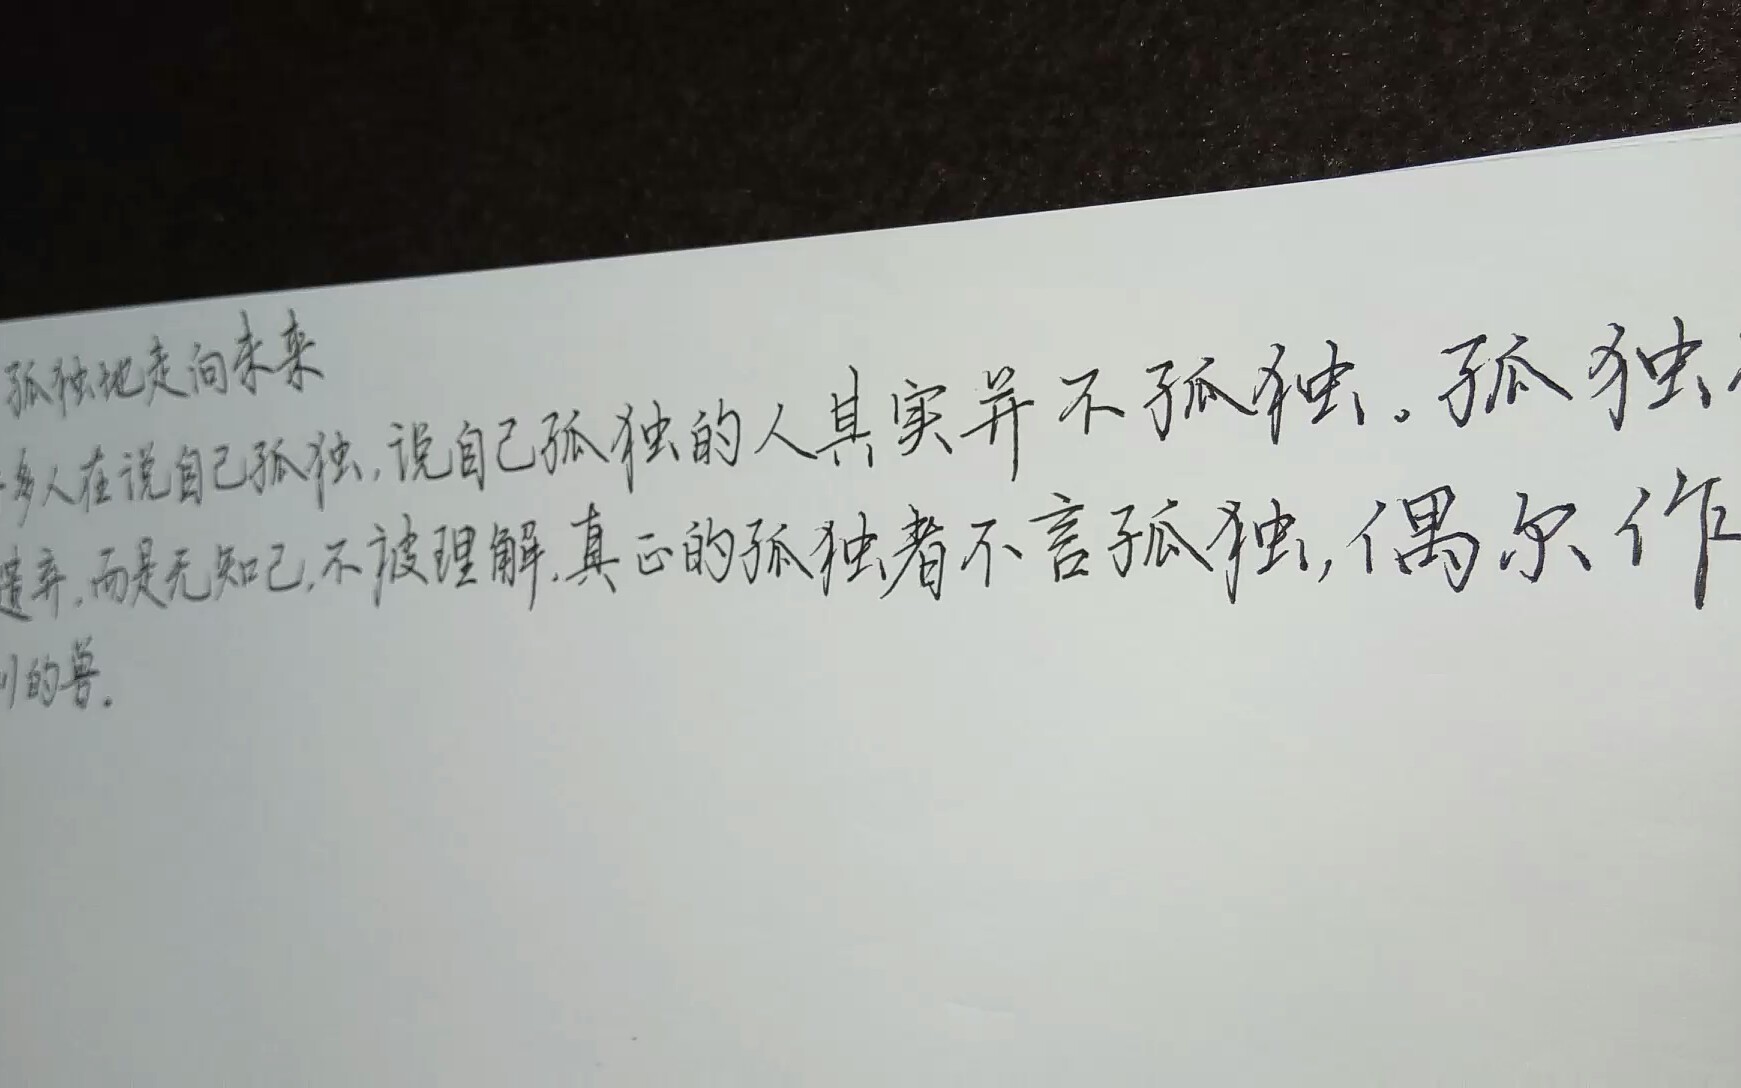 孤独地走向未来
多人在说自己孤独,说自己孤独的人其实并不孤独。孤独
遗弃,而是无知己,不被理解,真正的孤独者不言孤独,偶尔作
的兽。